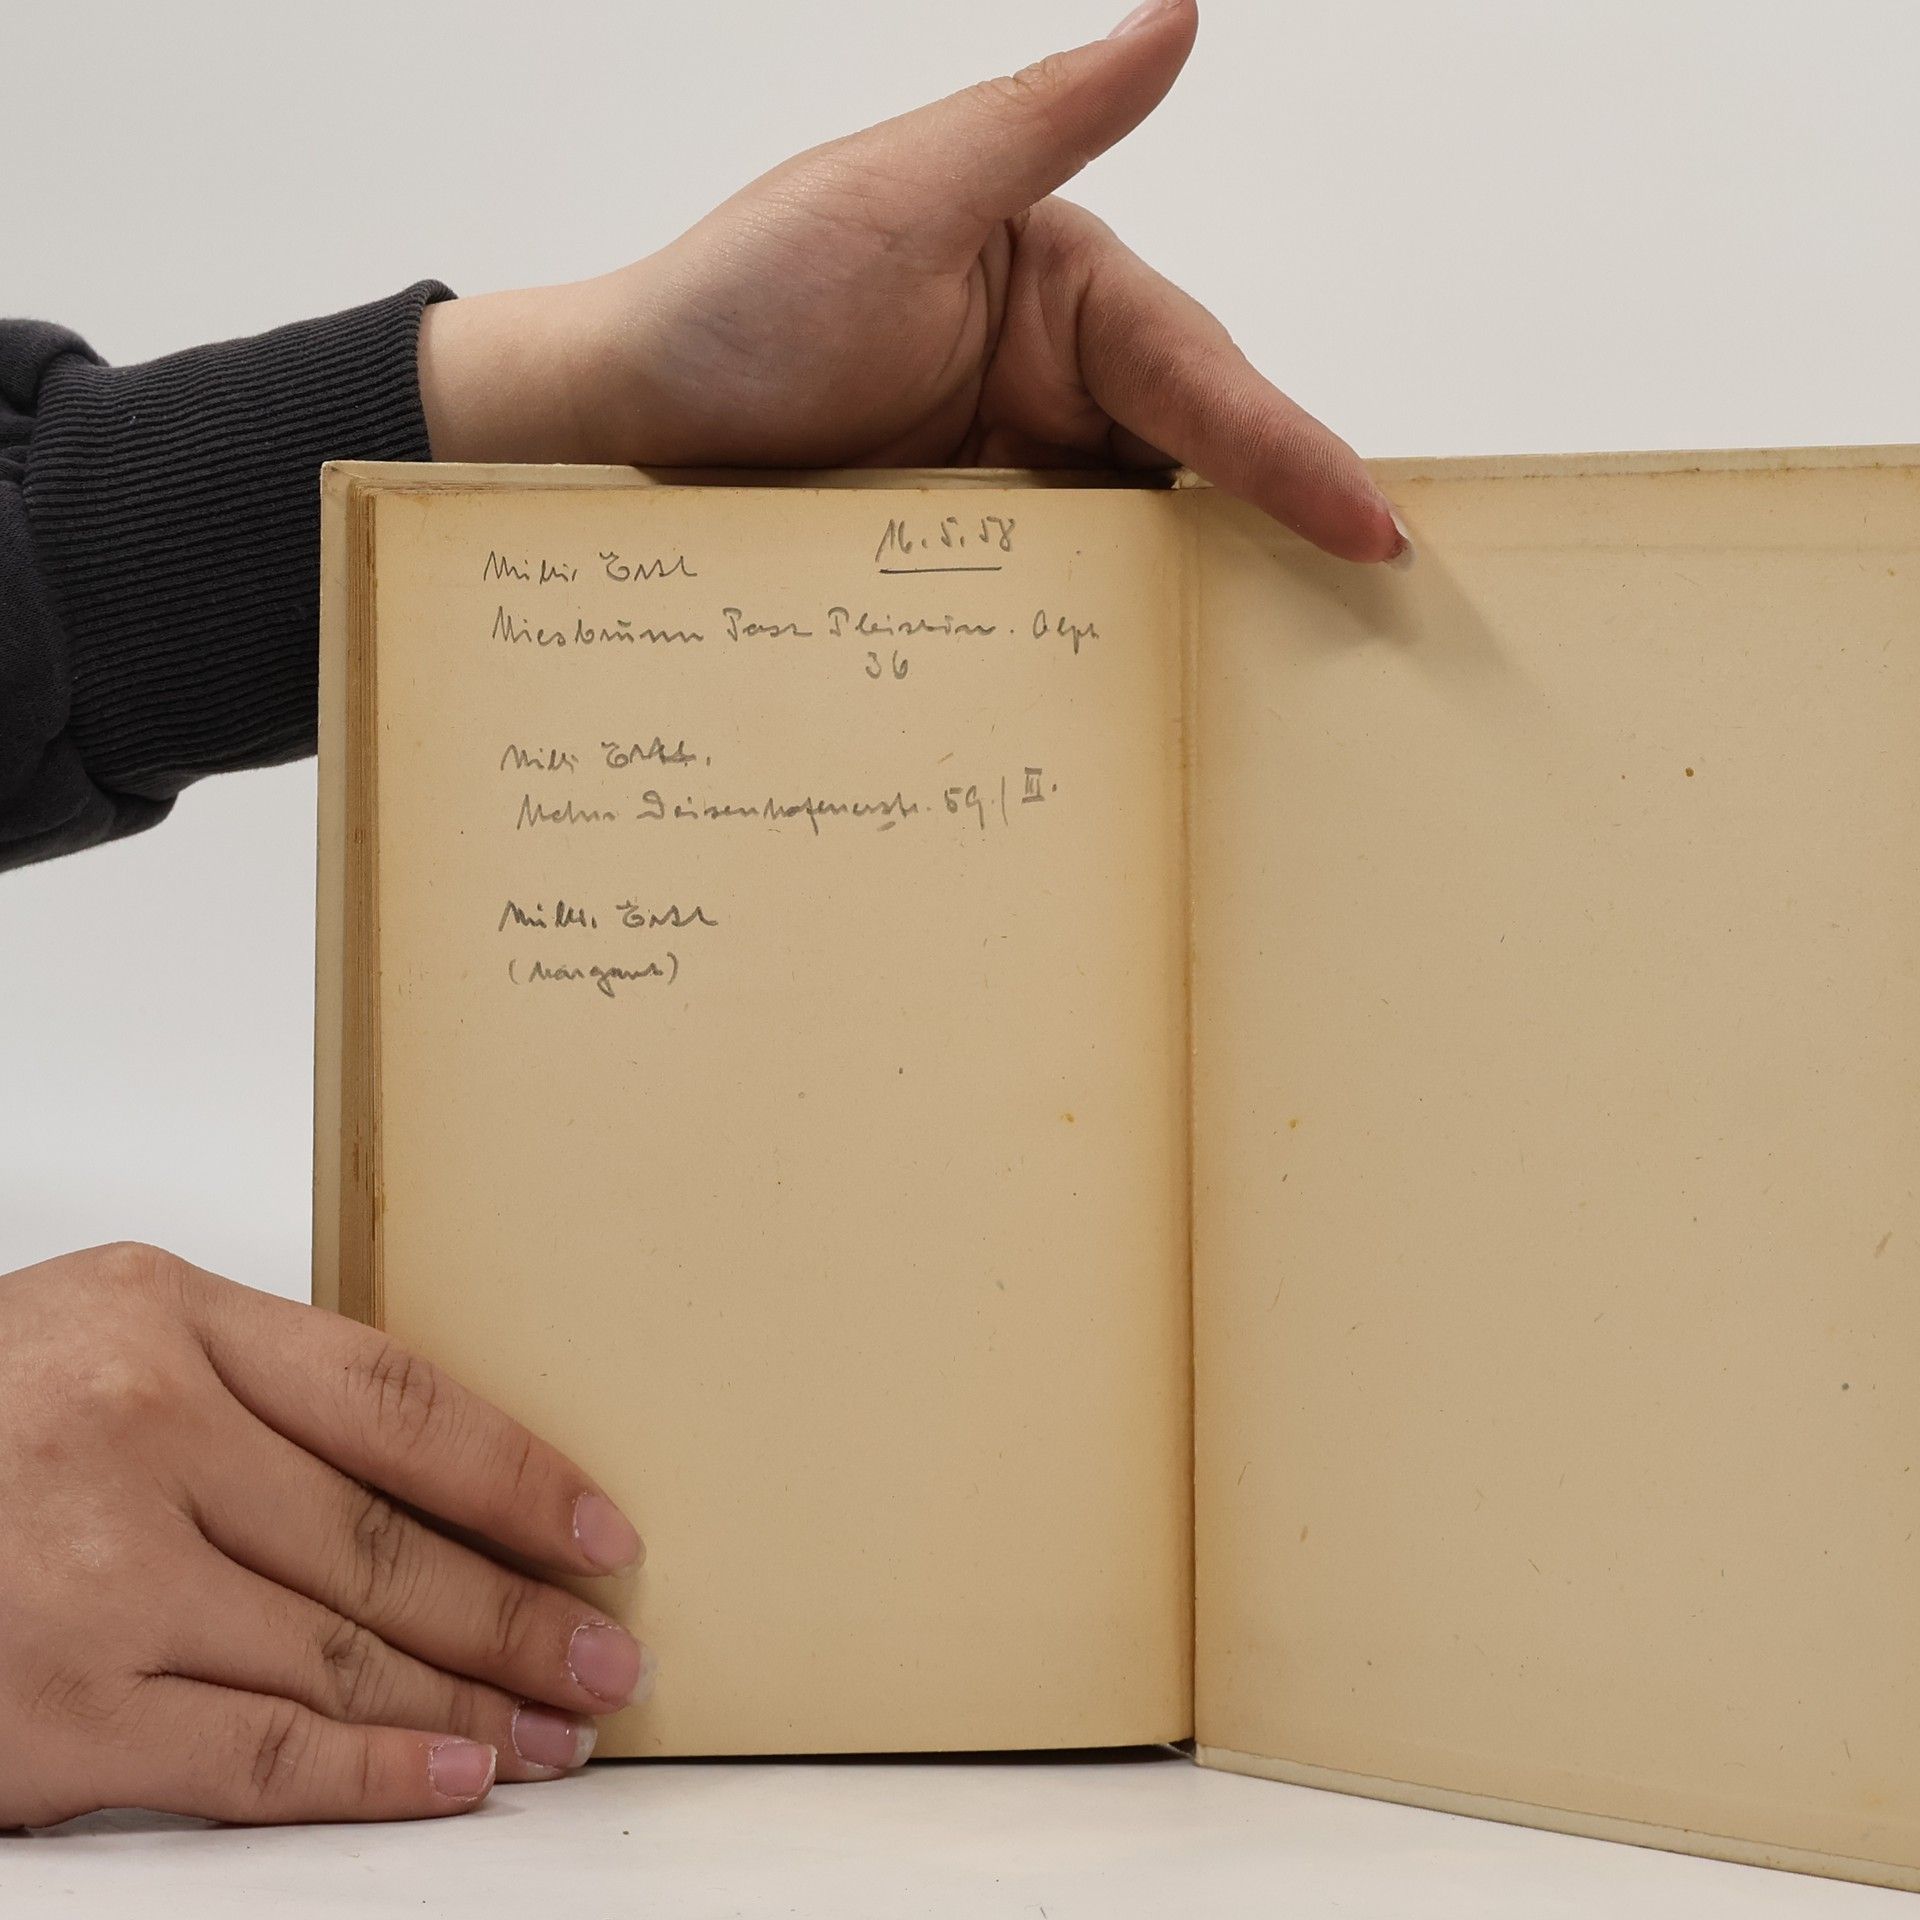 16.5.58
Milli Ertl
Miesbrunn Post Pleistein. Opf.
36
Milli Ertl.
Mchn Deisenhofenerstr. 59/III.
Milli Ertl
(Margaret)